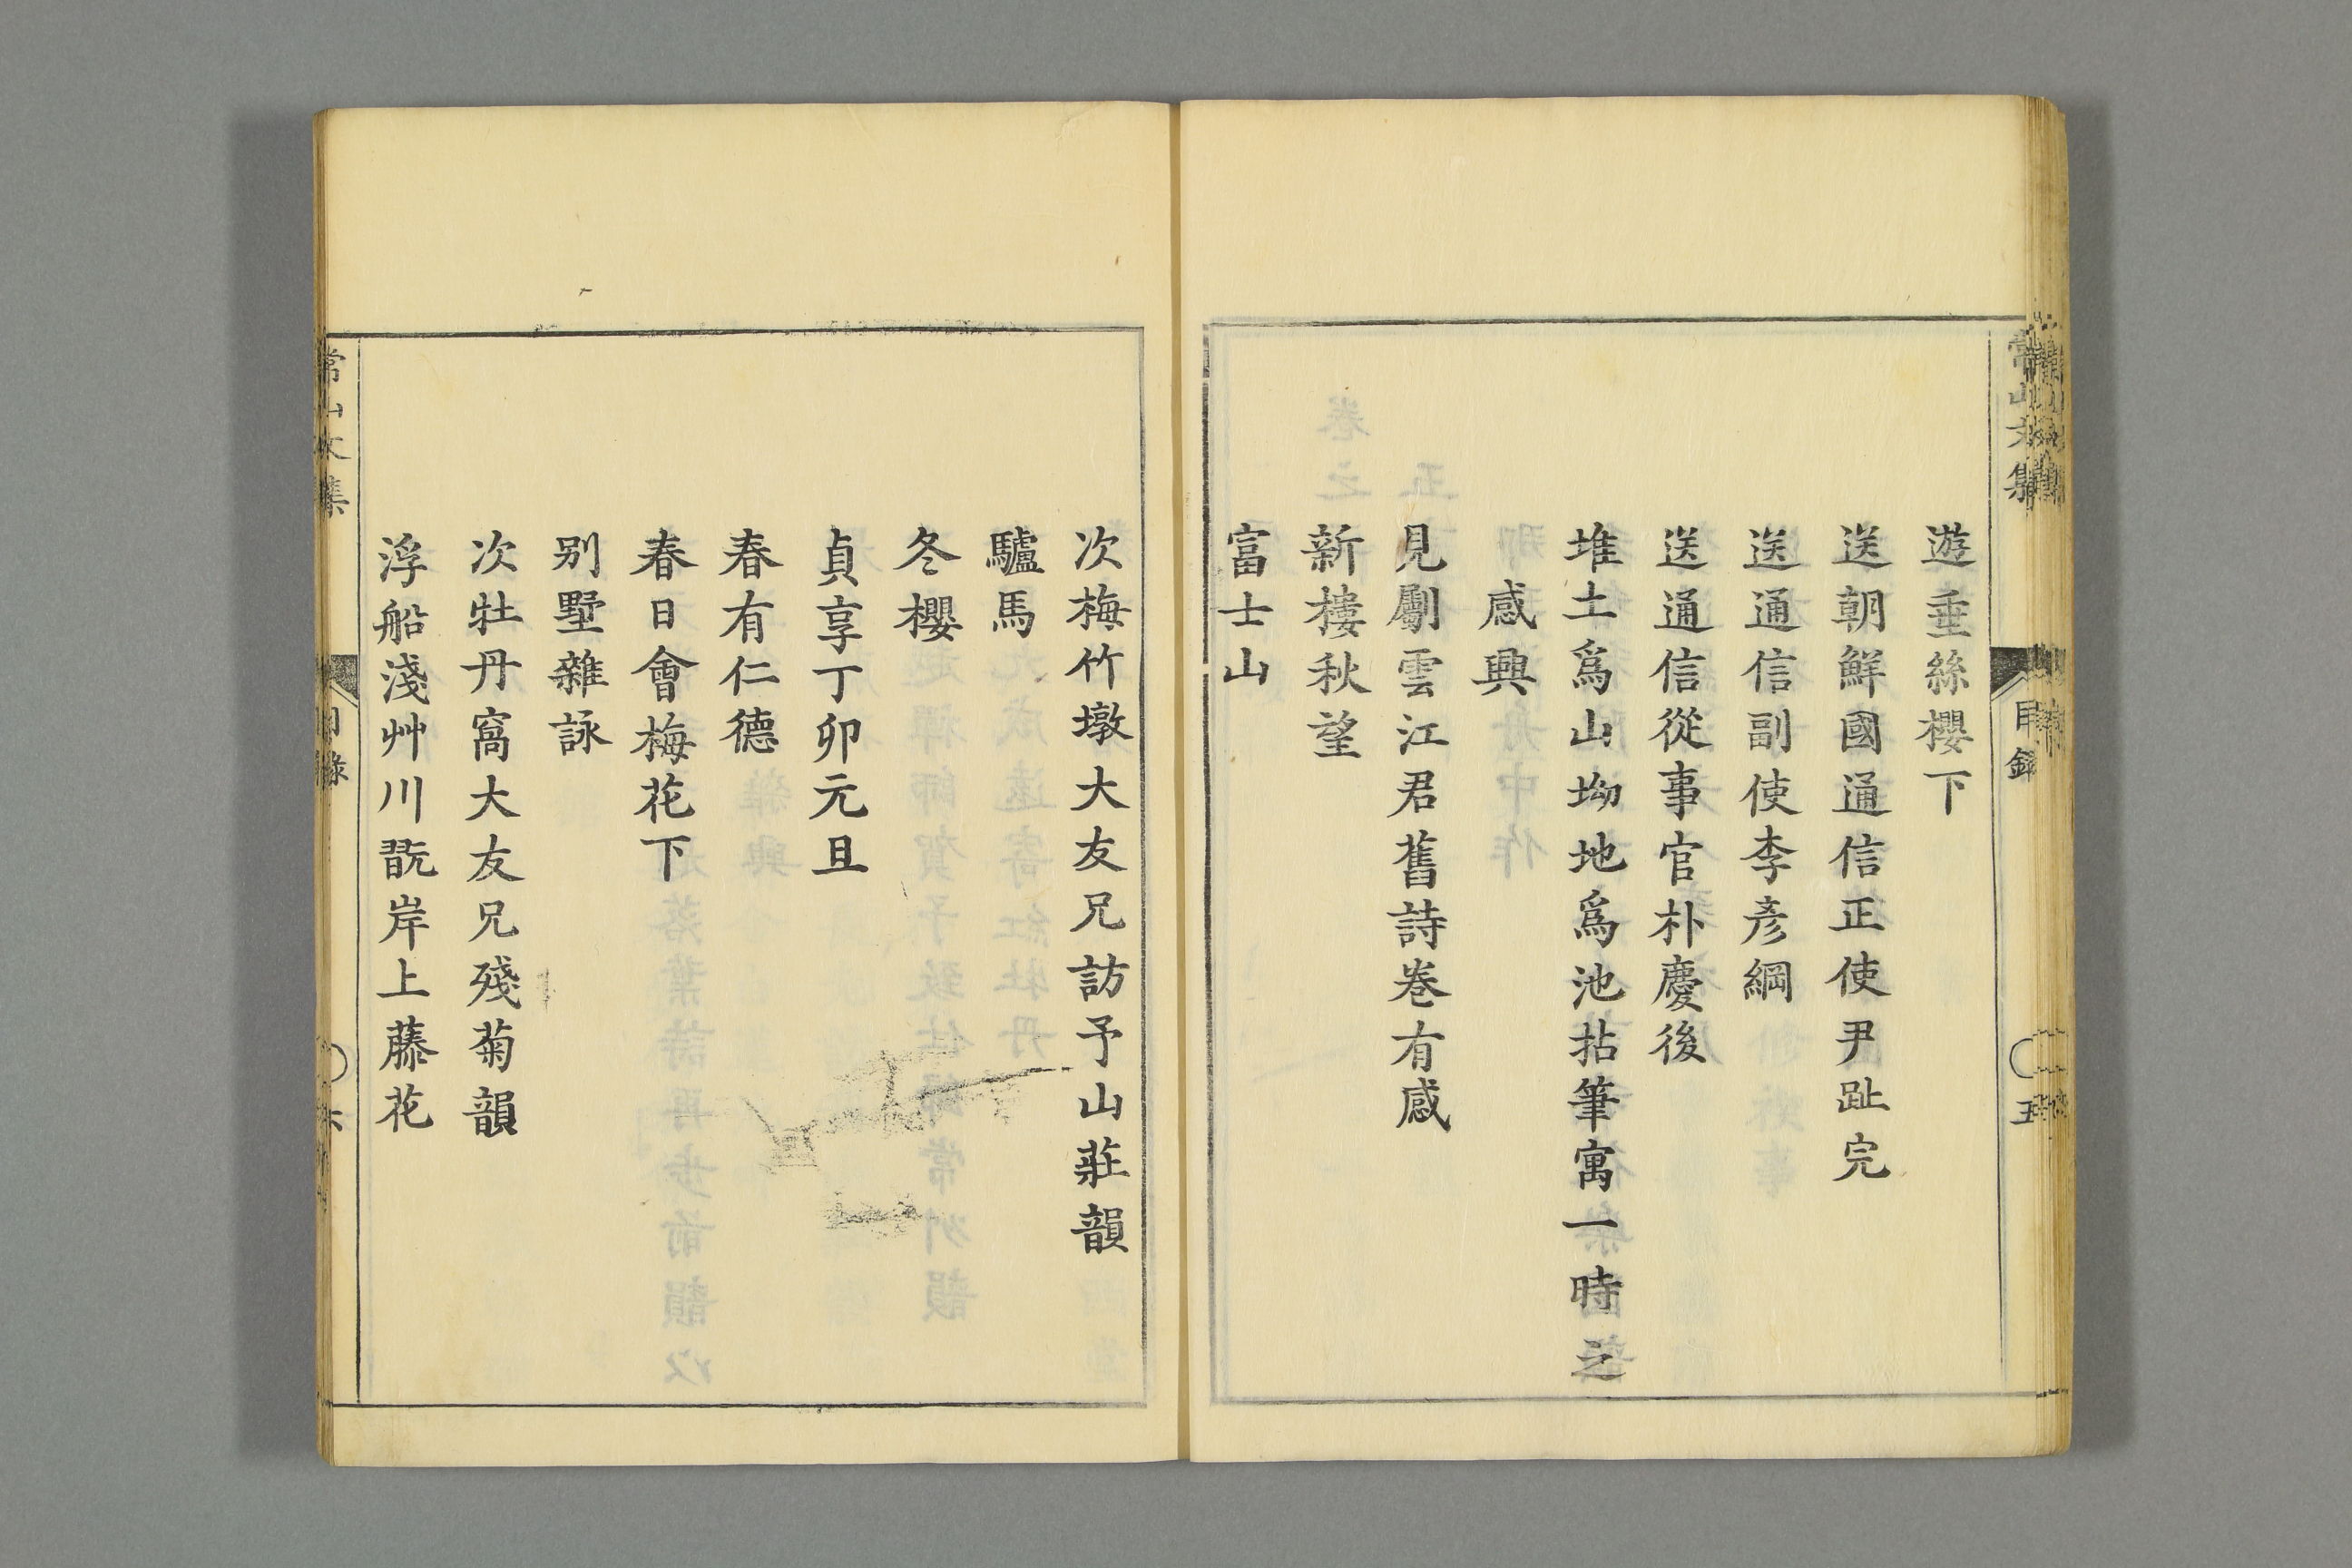 遊垂絲櫻下
送朝鮮國通信正使尹趾完
送通信副使李彦綱
送通信從事官朴慶後
堆土爲山坳地爲池拈筆寓一時之
感興
見劚雲江君舊詩巻有感
新樓秋望
富士山
常山文集
目録
五
次梅竹墩大友兄訪予山莊韻
驢馬
冬櫻
貞享丁卯元旦
春有仁德
春日會梅花下
别墅雜詠
次牡丹窩大友兄殘菊韻
浮船淺艸川翫岸上藤花
常山文集
目錄
六